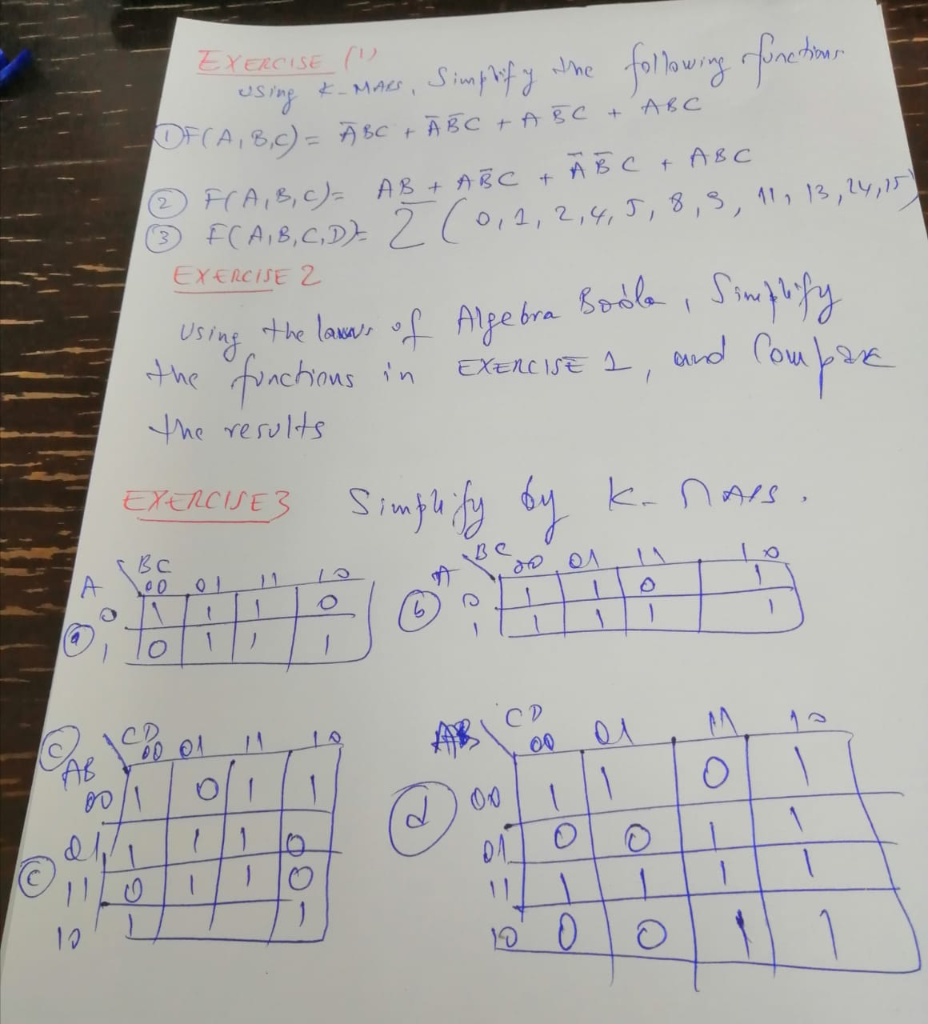 EXERCISE (1)
using K-MAPS, Simplify the following functions
① F(A,B,C) = A̅BC + A̅B̅C + AB̅C + ABC
② F(A,B,C)= AB + AB̅C + A̅B̅C + ABC
③ F(A,B,C,D)= Σ(0,1,2,4,5,8,9,11,13,24,15)
EXERCISE 2
Using the laws of Algebra Boole, Simplify
the functions in EXERCISE 1, and Compare
the results
EXERCISE 3 Simplify by K-MAPS.
BC
A 00 01 11 10
0 1 1 1 0
ⓐ 1 0 1 1 1
BC
A 00 01 11 10
ⓑ 0 1 1 0 1
1 1 1 1 1
ⓒ CD
AB 00 01 11 10
00 1 0 1 1
01 1 1 1 0
ⓒ 11 0 1 1 0
10 1 1
AB CD
00 01 11 10
ⓓ 00 1 1 0 1
01 0 0 1 1
11 1 1 1 1
10 0 0 1 1